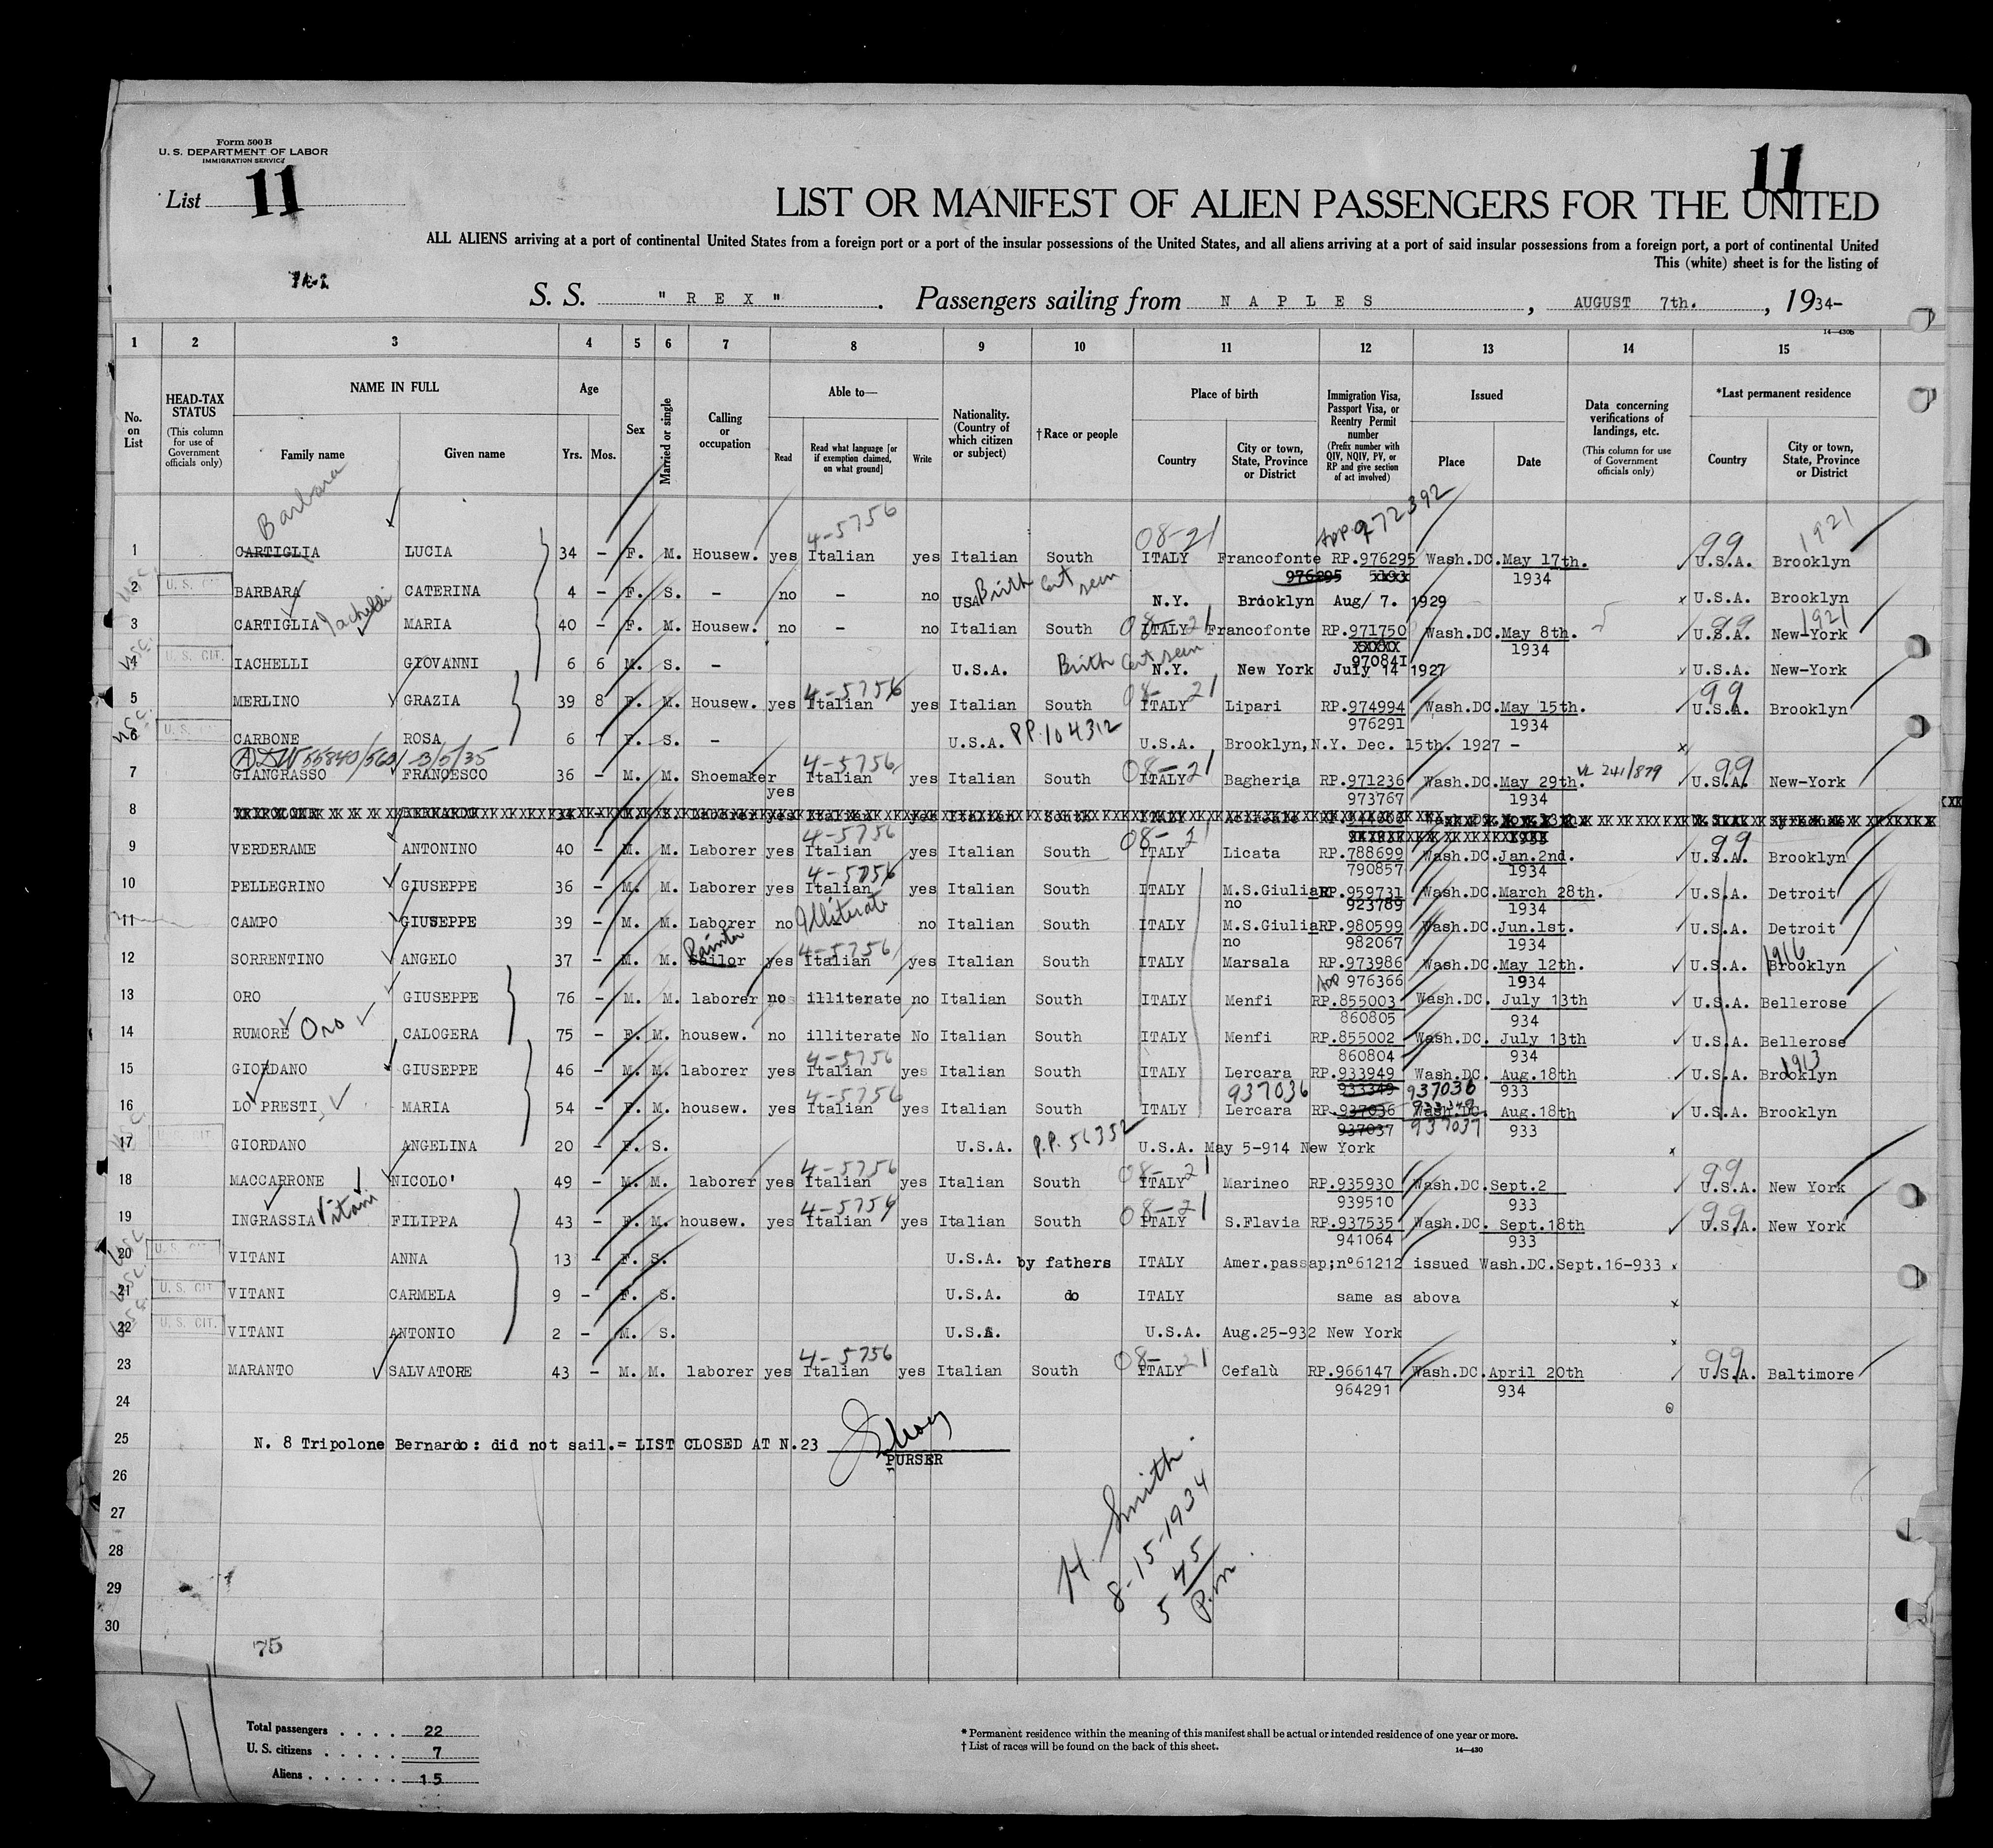 Form 500 B
U. S. DEPARTMENT OF LABOR
IMMIGRATION SERVICE
List 11
11
LIST OR MANIFEST OF ALIEN PASSENGERS FOR THE UNITED
ALL ALIENS arriving at a port of continental United States from a foreign port or a port of the insular possessions of the United States, and all aliens arriving at a port of said insular possessions from a foreign port, a port of continental United
This (white) sheet is for the listing of
S. S. "REX". Passengers sailing from NAPLES, AUGUST 7th., 1934-
14-430B
1 2 3 4 5 6 7 8 9 10 11 12 13 14 15
No. on List
HEAD-TAX STATUS (This column for use of Government officials only)
NAME IN FULL Family name Given name
Age Yrs. Mos.
Sex
Married or single
Calling or occupation
Able to— Read Read what language [or if exemption claimed, on what ground] Write
Nationality. (Country of which citizen or subject)
†Race or people
Place of birth Country City or town, State, Province or District
Immigration Visa, Passport Visa, or Reentry Permit number (Prefix number with QIV, NQIV, PV, or RP and give section of act involved)
Issued Place Date
Data concerning verifications of landings, etc. (This column for use of Government officials only)
*Last permanent residence Country City or town, State, Province or District
Barbara 4-5756 08-21 App 972392 99 1921
1 CARTIGLIA LUCIA 34 - F. M. Housew. yes Italian yes Italian South ITALY Francofonte RP.976295 Wash.DC.May 17th. U.S.A. Brooklyn
976295 5193 1934
2 U. S. CIT. BARBARA CATERINA 4 - F. S. - no - no USA Birth Cert seen N.Y. Brooklyn Aug/ 7. 1929 U.S.A. Brooklyn
3 CARTIGLIA Iachelli MARIA 40 - F. M. Housew. no - no Italian South 08-21 ITALY Francofonte RP.971750 Wash.DC.May 8th. 99 U.S.A. 1921 New-York
XXXXX 1934
970841
4 U. S. CIT. IACHELLI GIOVANNI 6 6 M. S. - U.S.A. Birth Cert seen N.Y. New York July 14 1927 U.S.A. New-York
5 MERLINO GRAZIA 39 8 F. M. Housew. yes 4-5756 Italian yes Italian South 08-21 ITALY Lipari RP.974994 Wash.DC.May 15th. 99 U.S.A. Brooklyn
976291 1934
6 U. S. CARBONE ROSA 6 7 F. S. - U.S.A. PP.104312 U.S.A. Brooklyn, N.Y. Dec. 15th. 1927 -
55840/560 3/5/35
7 GIANGRASSO FRANCESCO 36 - M. M. Shoemaker yes 4-5756 Italian yes Italian South 08-21 ITALY Bagheria RP.971236 Wash.DC.May 29th. VL 241/879 99 U.S.A. New-York
973767 1934
8 TRIPOLONE BERNARDO
9 VERDERAME ANTONINO 40 - M. M. Laborer yes 4-5756 Italian yes Italian South 08-21 ITALY Licata RP.788699 Wash.DC.Jan.2nd. 99 U.S.A. Brooklyn
790857 1934
10 PELLEGRINO GIUSEPPE 36 - M. M. Laborer yes 4-5756 Italian yes Italian South ITALY M.S.Giuliano RP.959731 Wash.DC.March 28th. U.S.A. Detroit
923789 1934
11 CAMPO GIUSEPPE 39 - M. M. Laborer no Illiterate no Italian South ITALY M.S.Giuliano RP.980599 Wash.DC.Jun.1st. U.S.A. Detroit
982067 1934
12 SORRENTINO ANGELO 37 - M. M. Painter Sailor yes 4-5756 Italian yes Italian South ITALY Marsala RP.973986 Wash.DC.May 12th. U.S.A. 1916 Brooklyn
App 976366 1934
13 ORO GIUSEPPE 76 - M. M. laborer no illiterate no Italian South ITALY Menfi RP.855003 Wash.DC. July 13th U.S.A. Bellerose
860805 934
14 RUMORE Oro CALOGERA 75 - F. M. housew. no illiterate No Italian South ITALY Menfi RP.855002 Wash.DC. July 13th U.S.A. Bellerose
860804 934
15 GIORDANO GIUSEPPE 46 - M. M. laborer yes 4-5756 Italian yes Italian South ITALY Lercara RP.933949 Wash.DC. Aug.18th U.S.A. 1913 Brooklyn
937036 933349 937036 933
16 LO PRESTI MARIA 54 - F. M. housew. yes 4-5756 Italian yes Italian South ITALY Lercara RP.937036 Wash.DC. Aug.18th U.S.A. Brooklyn
937037 937037 933
17 GIORDANO ANGELINA 20 - F. S. U.S.A. P.P. 56352 U.S.A. May 5-914 New York
18 MACCARRONE NICOLO' 49 - M. M. laborer yes 4-5756 Italian yes Italian South 08-21 ITALY Marineo RP.935930 Wash.DC.Sept.2 99 U.S.A. New York
939510 933
19 INGRASSIA Vitani FILIPPA 43 - F. M. housew. yes 4-5756 Italian yes Italian South 08-21 ITALY S.Flavia RP.937535 Wash.DC. Sept.18th 99 U.S.A. New York
941064 933
20 U. S. CIT. VITANI ANNA 13 - F. S. U.S.A. by fathers ITALY Amer.passap;n°61212 issued Wash.DC.Sept.16-933
21 U. S. CIT. VITANI CARMELA 9 - F. S. U.S.A. do ITALY same as abova
22 U. S. CIT. VITANI ANTONIO 2 - M. S. U.S.A. U.S.A. Aug.25-932 New York
23 MARANTO SALVATORE 43 - M. M. laborer yes 4-5756 Italian yes Italian South 08-21 ITALY Cefalù RP.966147 Wash.DC.April 20th 99 U.S.A. Baltimore
964291 934
24
25 N. 8 Tripolone Bernardo: did not sail.= LIST CLOSED AT N.23
PURSER
26
27
28
29
30
H. Smith
8-15-1934
5 45 P.m.
75
Total passengers . . . . 22
U. S. citizens . . . . . 7
Aliens . . . . . . 15
* Permanent residence within the meaning of this manifest shall be actual or intended residence of one year or more.
† List of races will be found on the back of this sheet.
14-430